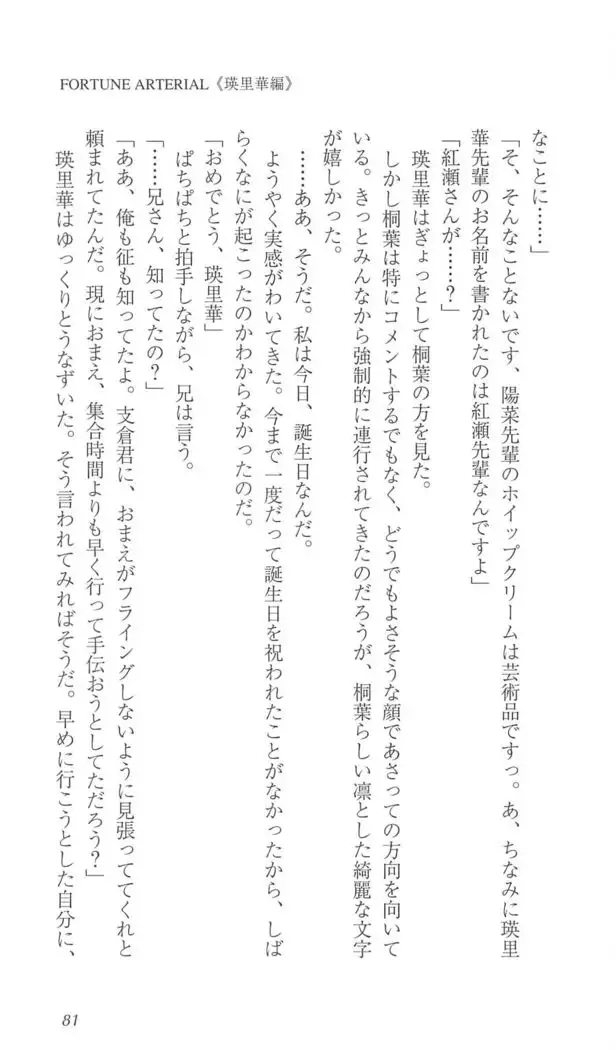 FORTUNE ARTERIAL《瑛里華編》
なことに……」
「そ、そんなことないです、陽菜先輩のホイップクリームは芸術品ですっ。あ、ちなみに瑛里
華先輩のお名前を書かれたのは紅瀬先輩なんですよ」
「紅瀬さんが……？」
瑛里華はぎょっとして桐葉の方を見た。
しかし桐葉は特にコメントするでもなく、どうでもよさそうな顔であさっての方向を向いて
いる。きっとみんなから強制的に連行されてきたのだろうが、桐葉らしい凛とした綺麗な文字
が嬉しかった。
……ああ、そうだ。私は今日、誕生日なんだ。
ようやく実感がわいてきた。今まで一度だって誕生日を祝われたことがなかったから、しば
らくなにが起こったのかわからなかったのだ。
「おめでとう、瑛里華」
ぱちぱちと拍手しながら、兄は言う。
「……兄さん、知ってたの？」
「ああ、俺も征も知ってたよ。支倉君に、おまえがフライングしないように見張っててくれと
頼まれてたんだ。現におまえ、集合時間よりも早く行って手伝おうとしてただろう？」
瑛里華はゆっくりとうなずいた。そう言われてみればそうだ。早めに行こうとした自分に、
81